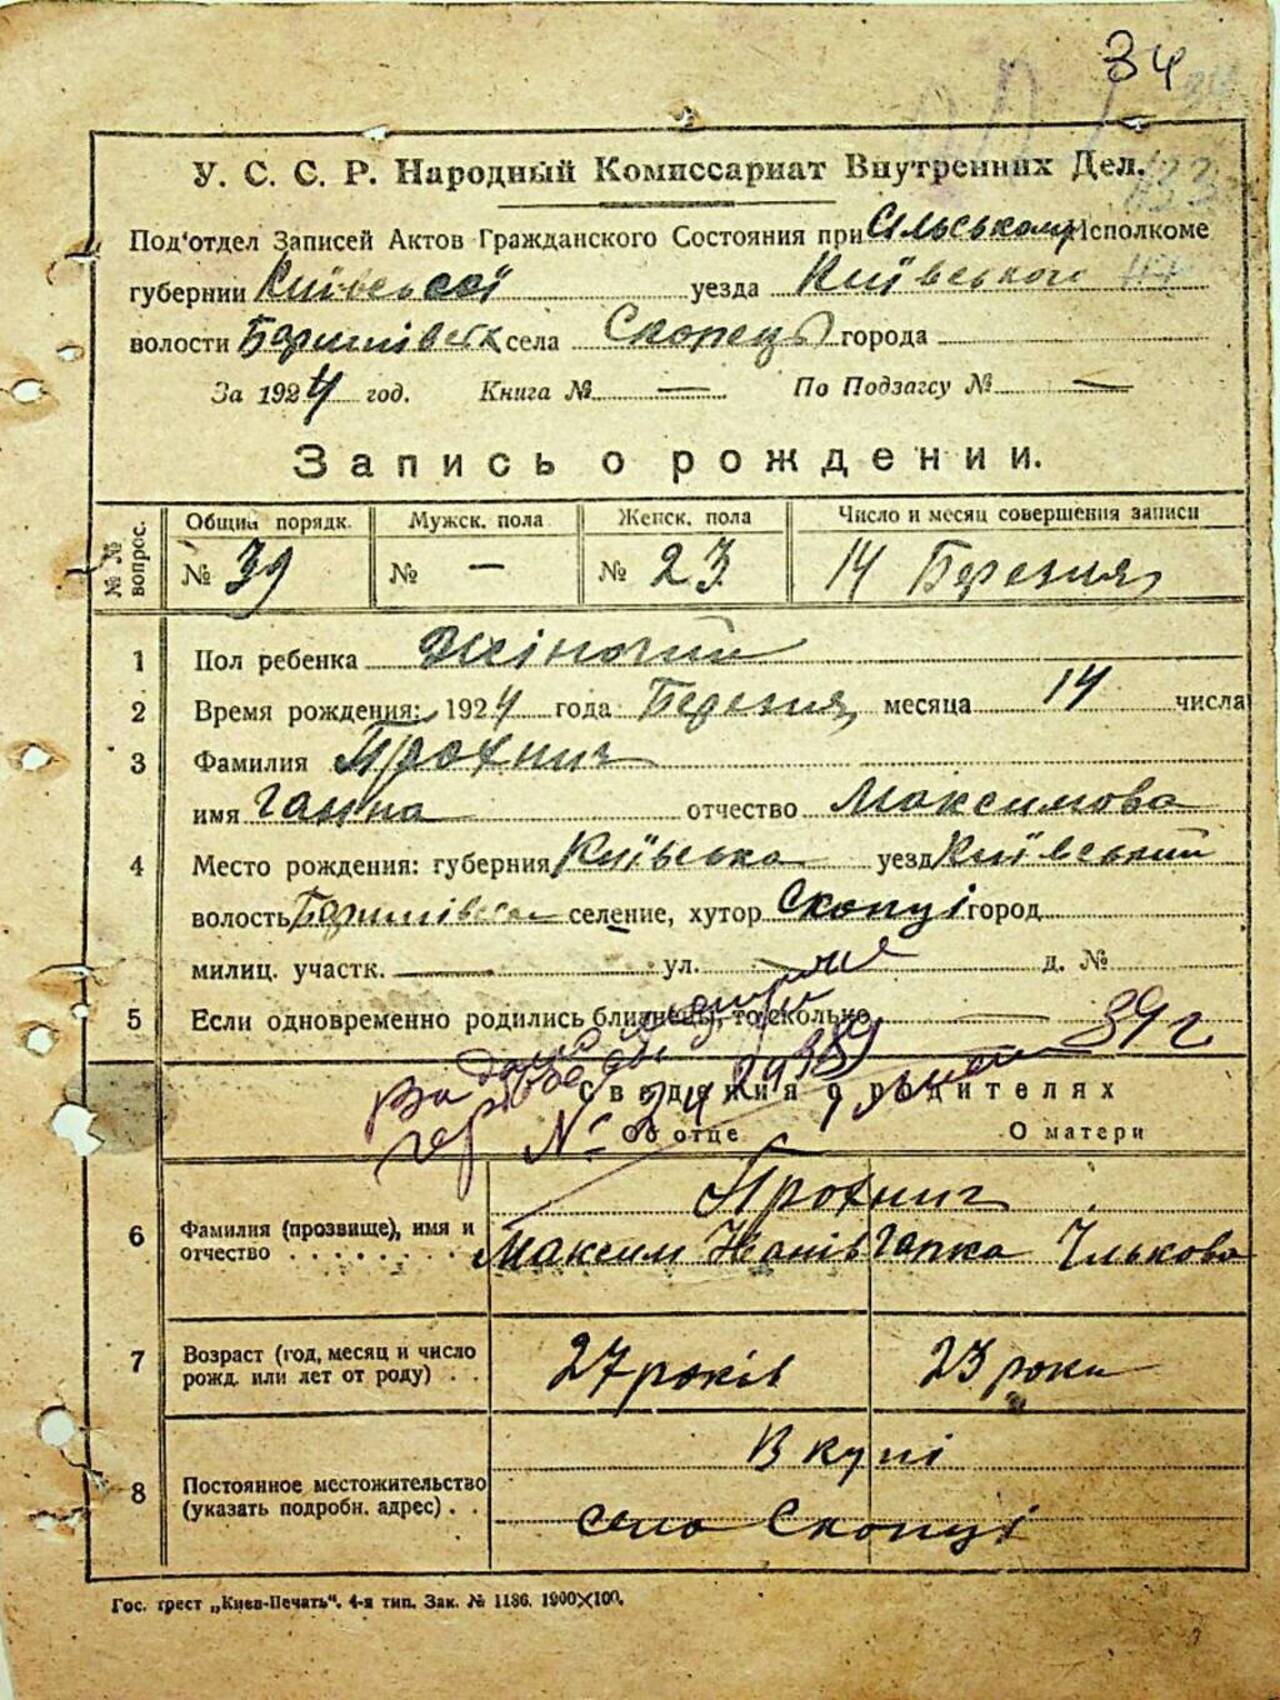 34
У. С. С. Р. Народный Комиссариат Внутренних Дел.
133
Под'отдел Записей Актов Гражданского Состояния при Сільському Исполкоме
губернии Київської уезда Київського
волости Баришівськ села Скопець города
За 1924 год. Книга № — По Подзагсу № —
Запись о рождении.
№№ вопрос. Общий порядк. Мужск. пола Женск. пола Число и месяц совершения записи
№ 39 № — № 23 14 Березня
1 Пол ребенка Жіночий
2 Время рождения: 1924 года Березня месяца 14 числа
3 Фамилия Прохнич
имя Ганна отчество Максимова
4 Место рождения: губерния Київська уезд Київський
волость Баришівська селение, хутор Скопці город
милиц. участк. — ул. — д. №
5 Если одновременно родились близнецы, то сколько —
39 г
Сведения о родителях
№
Об отце О матери
Прохнич
6 Фамилия (прозвище), имя и Максим Іванів Гапка Ількова
отчество
7 Возраст (год, месяц и число 27 років 23 роки
рожд. или лет от роду)
Вкупі
8 Постоянное местожительство
(указать подробн. адрес) село Скопці
Гос. трест „Киев-Печать“. 4-я тип. Зак. № 1186. 1900×100.